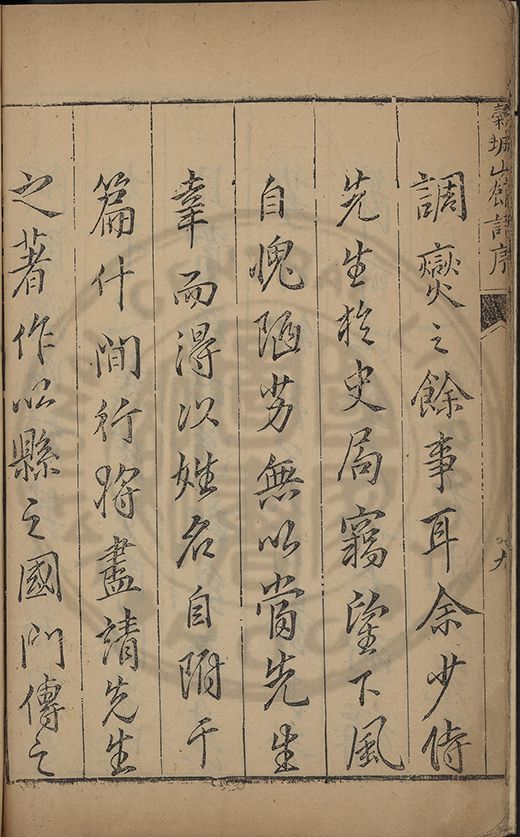 穀城山館詩序
九
調燮之餘事耳余少侍
先生於史局竊望下風
自愧陋劣無以當先生
幸而得以姓名自附于
篇什間行將盡請先生
之著作以縣之國門傳之